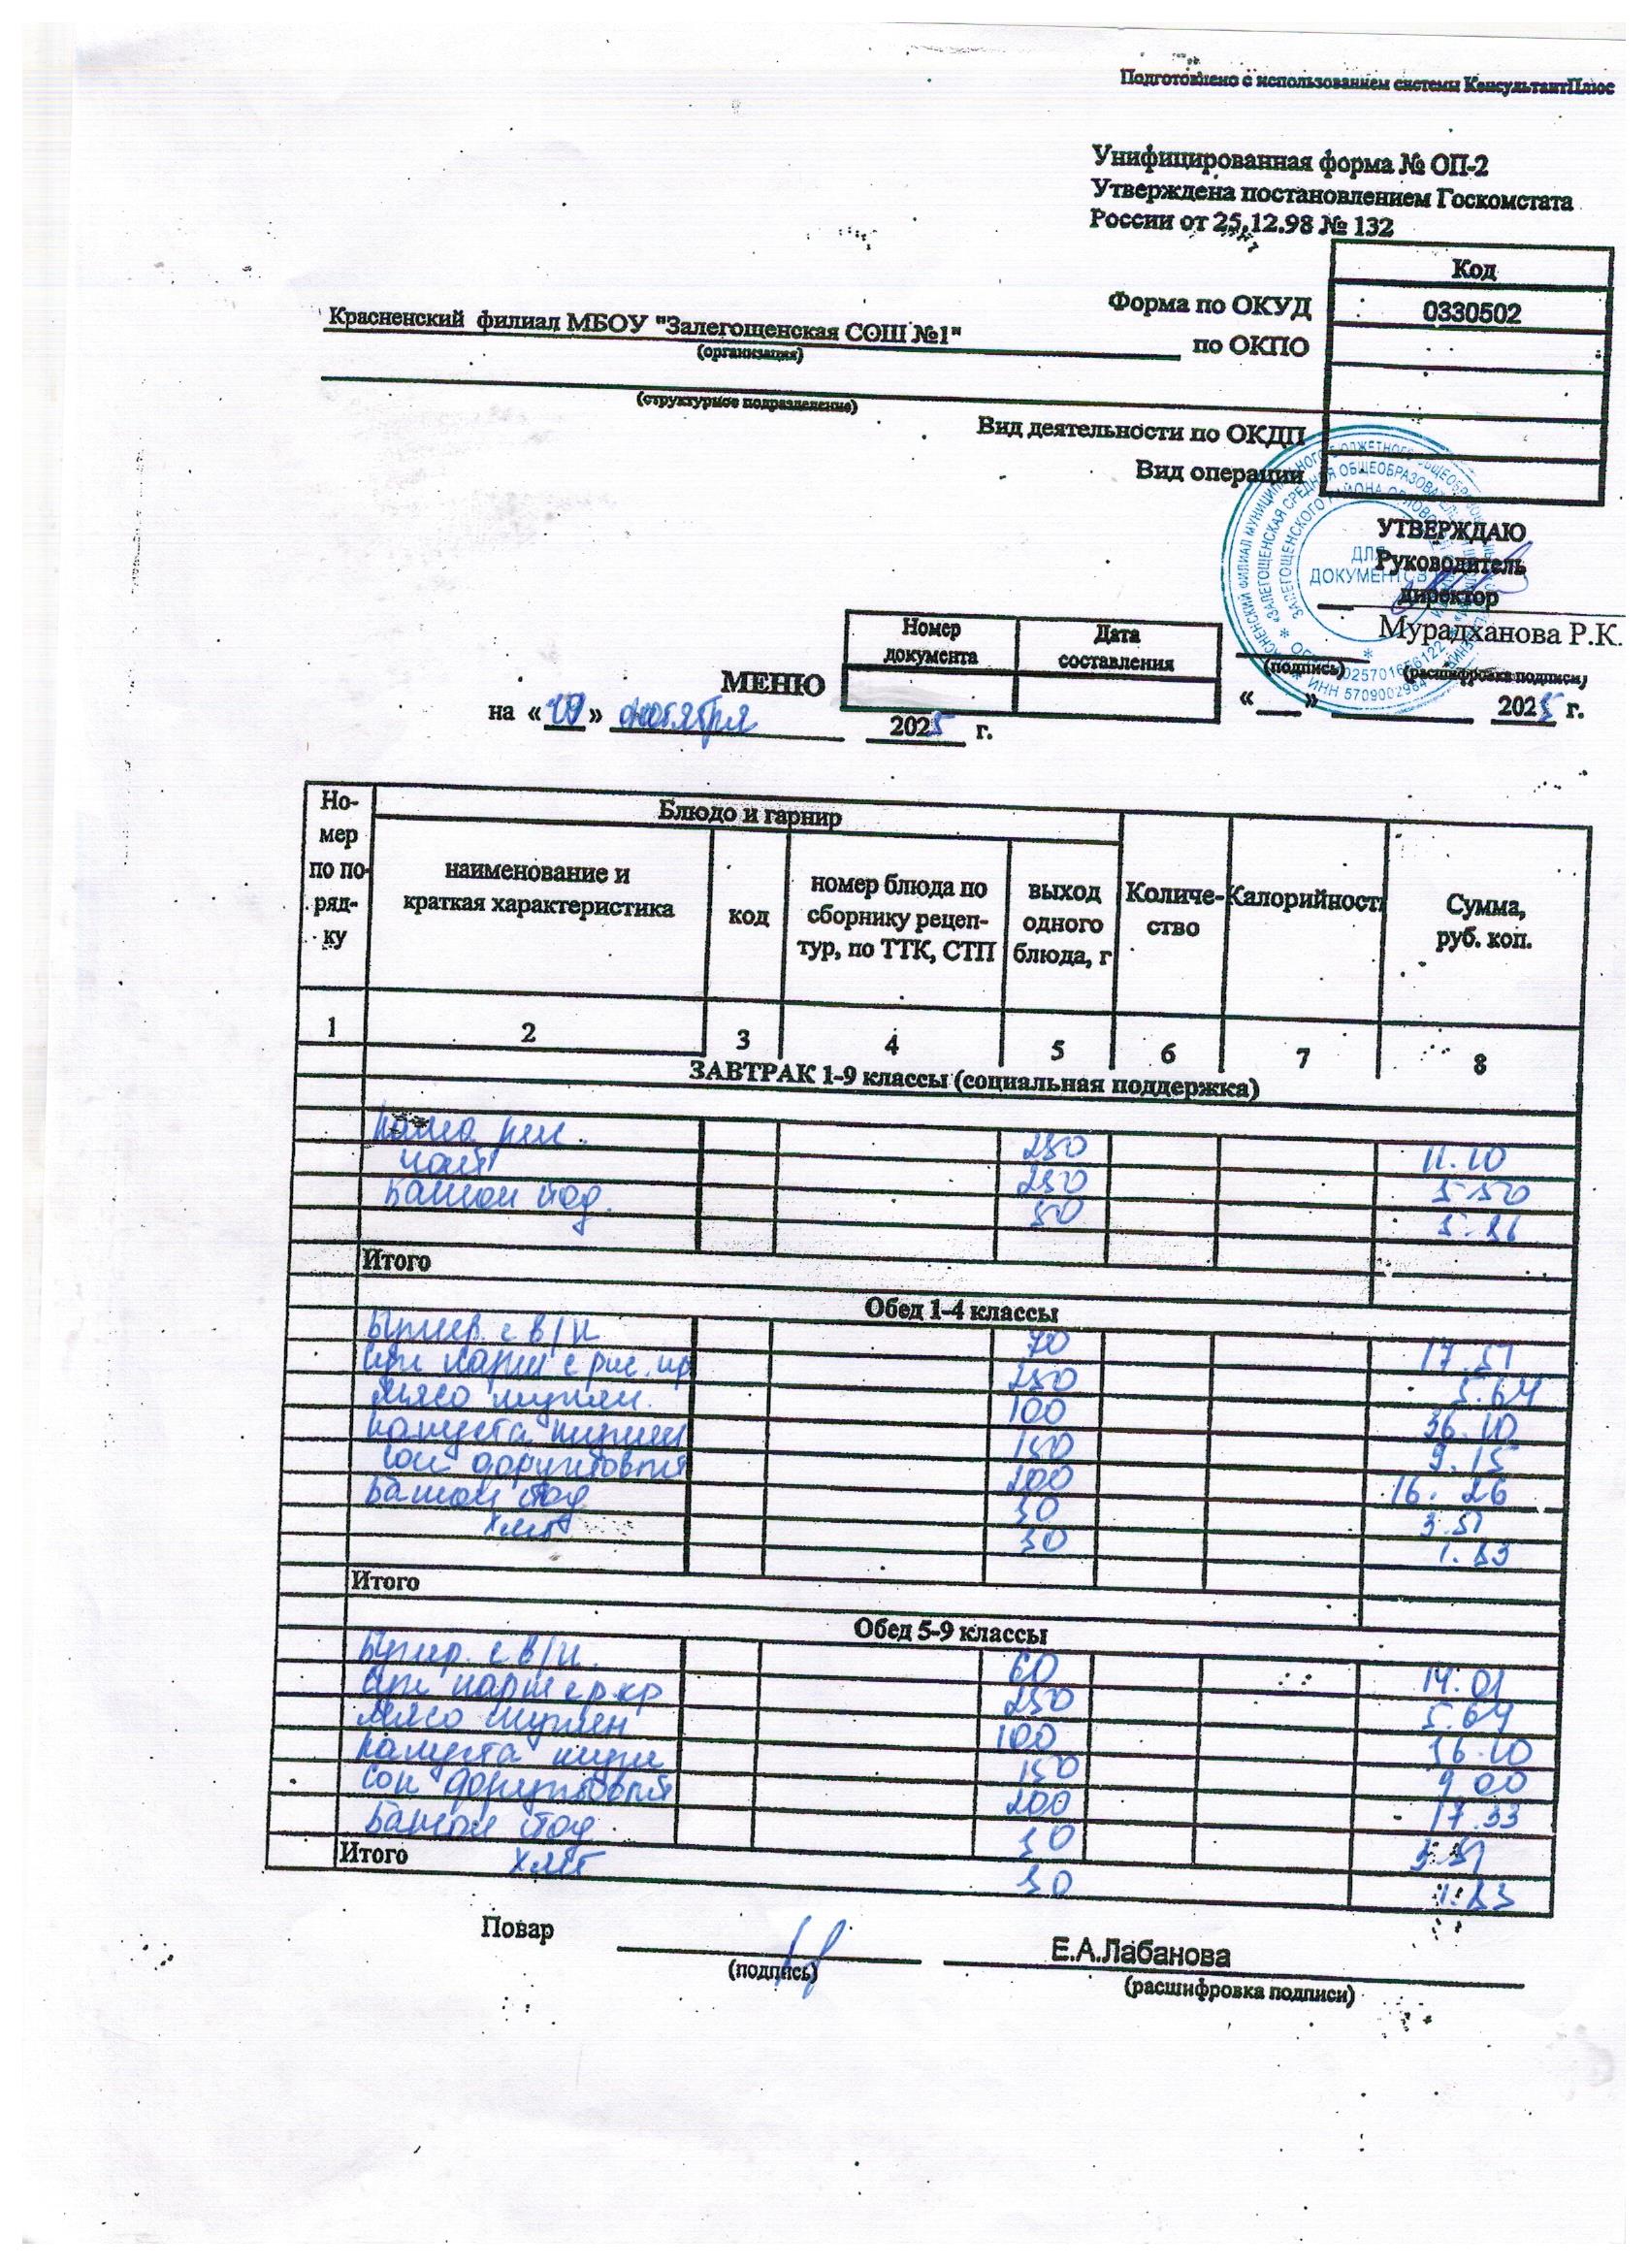 Подготовлено с использованием системы КонсультантПлюс
Унифицированная форма № ОП-2
Утверждена постановлением Госкомстата
России от 25.12.98 № 132
Код
Форма по ОКУД 0330502
Красненский филиал МБОУ "Залегощенская СОШ №1"
по ОКПО
(организация)
(структурное подразделение)
Вид деятельности по ОКДП
Вид операции
УТВЕРЖДАЮ
Руководитель
ДЛЯ
ДОКУМЕНТОВ
директор
Мурадханова Р.К.
(подпись) (расшифровка подписи)
Номер документа Дата составления
МЕНЮ
« » 2025 г.
на « » октября 2025 г.
Но-мер по по-ряд-ку
Блюдо и гарнир
наименование и краткая характеристика
код
номер блюда по сборнику рецеп-тур, по ТТК, СТП
выход одного блюда, г
Количе-ство
Калорийность
Сумма, руб. коп.
1 2 3 4 5 6 7 8
ЗАВТРАК 1-9 классы (социальная поддержка)
Каша рис. 250 11.10
чай 5.50
Батон йод. 50
Итого
Обед 1-4 классы
Бутер. с в/к 70 17.51
250 5.64
Мясо тушен. 100 36.10
Капуста тушен 150 9.15
Сок фруктовый 200 16.26
Батон йод 30 3.51
30 1.83
Итого
Обед 5-9 классы
Бутер. с в/к. 60 14.01
250 5.64
Мясо тушен 100 36.10
Капуста туш 150 9 00
Сок фруктовый 200 17.33
Батон йод 30 3.51
Итого 30 1.83
Повар Е.А.Лабанова
(подпись) (расшифровка подписи)